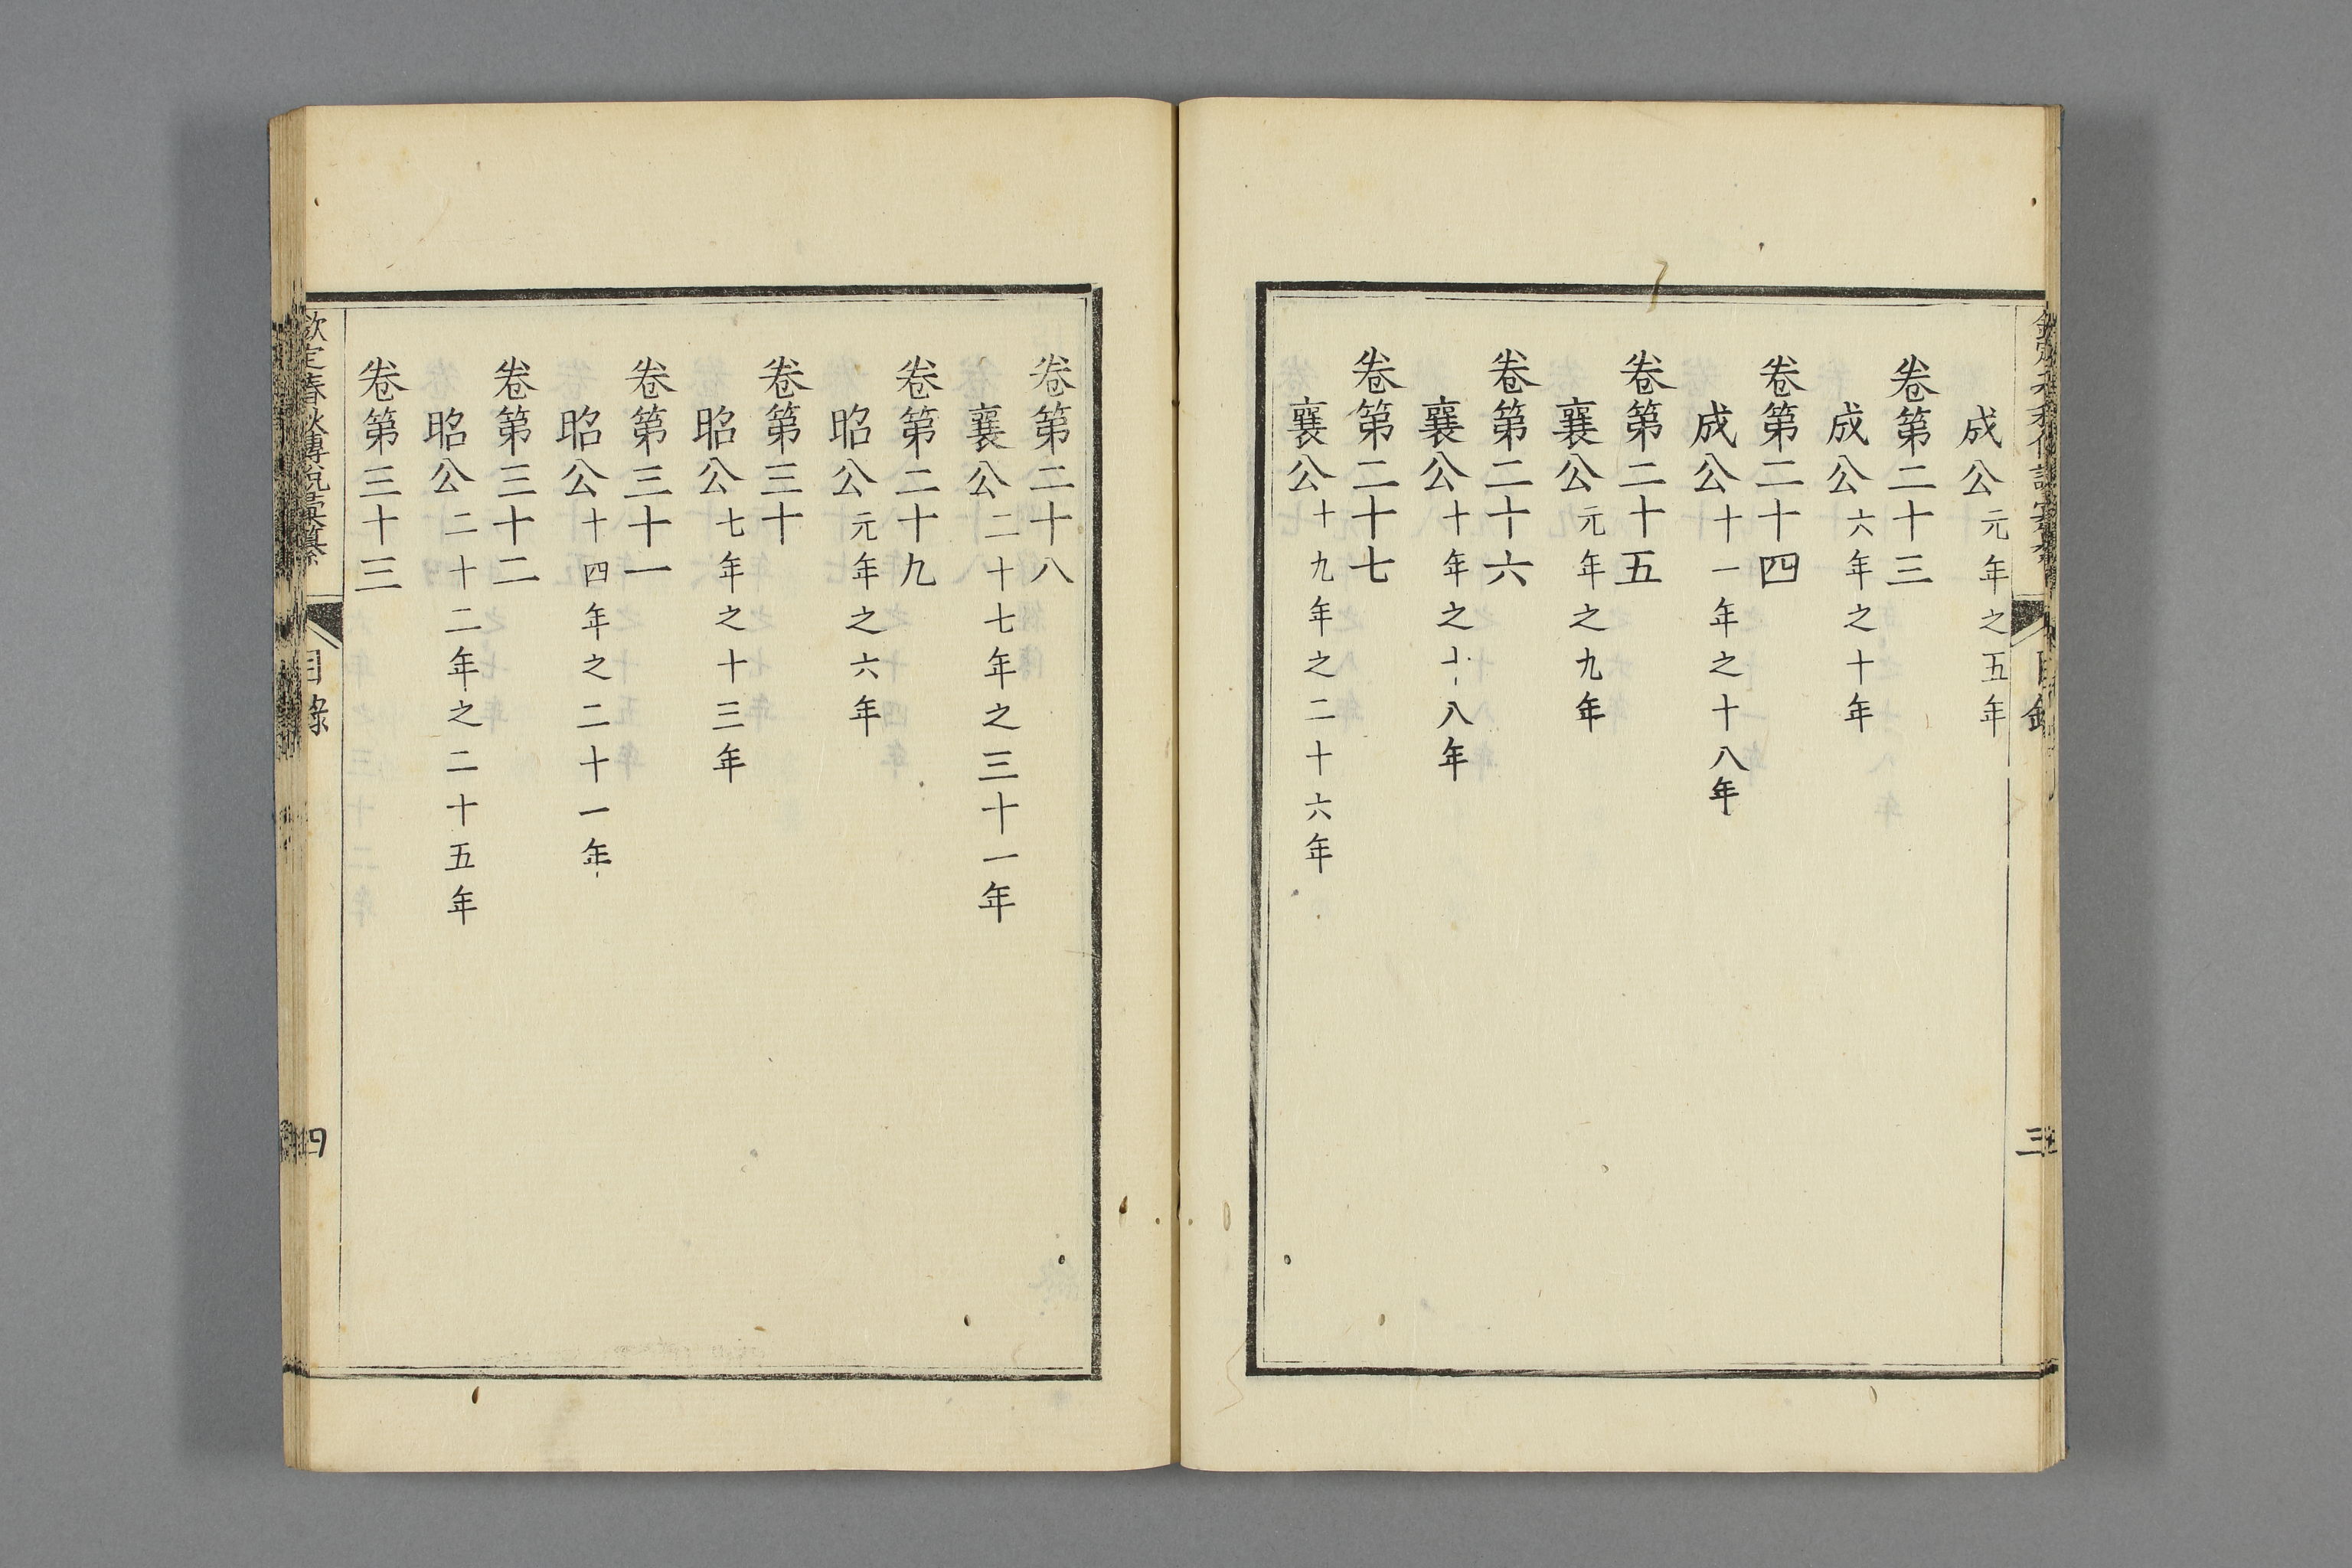 成公元年之五年
卷第二十三
成公六年之十年
卷第二十四
成公十一年之十八年
卷第二十五
襄公元年之九年
卷第二十六
襄公十年之十八年
卷第二十七
襄公十九年之二十六年
目錄
三
卷第二十八
襄公二十七年之三十一年
卷第二十九
昭公元年之六年
卷第三十
昭公七年之十三年
卷第三十一
昭公十四年之二十一年
卷第三十二
昭公二十二年之二十五年
卷第三十三
欽定春秋傳說彙纂
目錄
四